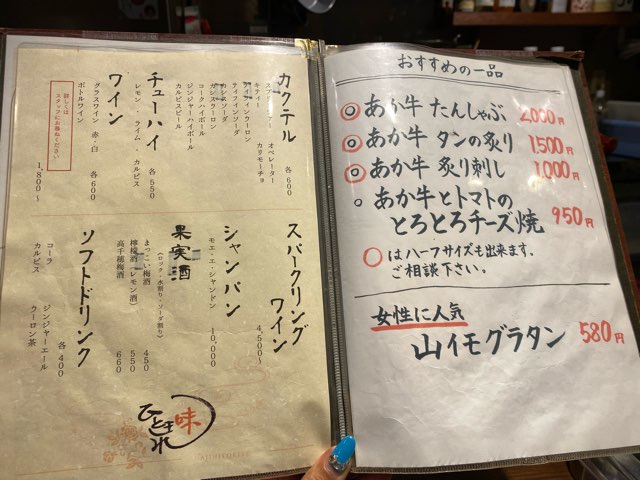 カクテル 各600
スプモーニ オペレーター
キティー カリモーチョ
カシスソーダ
カシスウーロン
コークハイボール
ジンジャーハイボール
カルピスビール
チューハイ 各550
レモン、ライム、カルピス
ワイン
グラスワイン 赤・白 各600
ボトルワイン 1,800〜
詳しくは
スタッフにお尋ねください。
スパークリング
ワイン 4,500〜
シャンパン
モエ・エ・シャンドン 10,000
果実酒
(ロック・水割り・ソーダ割り)
まっこい梅酒 450
檸檬酒(レモン酒) 550
高千穂梅酒 660
ソフトドリンク 各400
コーラ ジンジャーエール
カルピス ウーロン茶
味
ひとまれ
AJIHITOKIRE
おすすめの一品
◎あか牛 たんしゃぶ 2000円
◎あか牛 タンの炙り 1500円
◎あか牛 炙り刺し 1000円
○あか牛とトマトの
とろとろチーズ焼 950円
○はハーフサイズも出来ます。
ご相談下さい。
女性に人気
山イモグラタン 580円